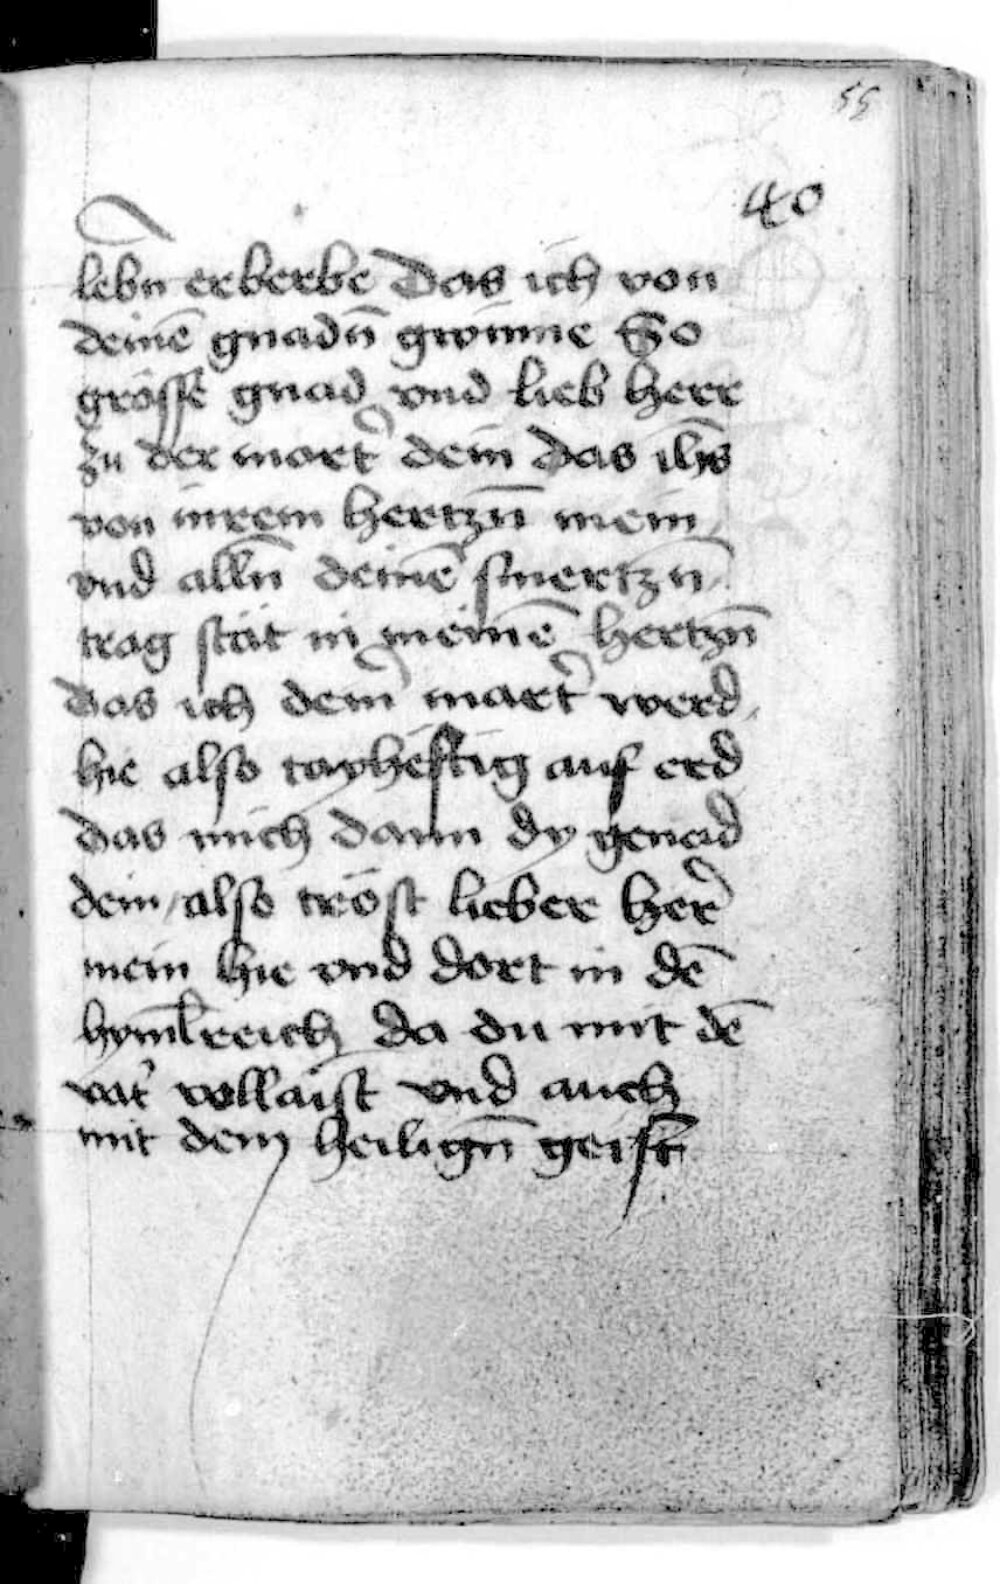 55
40
lebn erberbe Das ich von
deinē gnadn̄ gwinne So
grösse gnad vnd lieb herr
zu der mart' dein das ih̄s
von inrem hertzn̄ mein
vnd alln̄ deinē smertzn̄
trag stät in meinē hertzn̄
das ich dein' mart' werd
hie also tayheftig auf erd
das mich dann dy genad
dein / also tröst lieber her'
mein hie vnd dort in dē
hyml̄reich da du mit dē
vat' vollaist vnd auch
mit dem heilign̄ geist